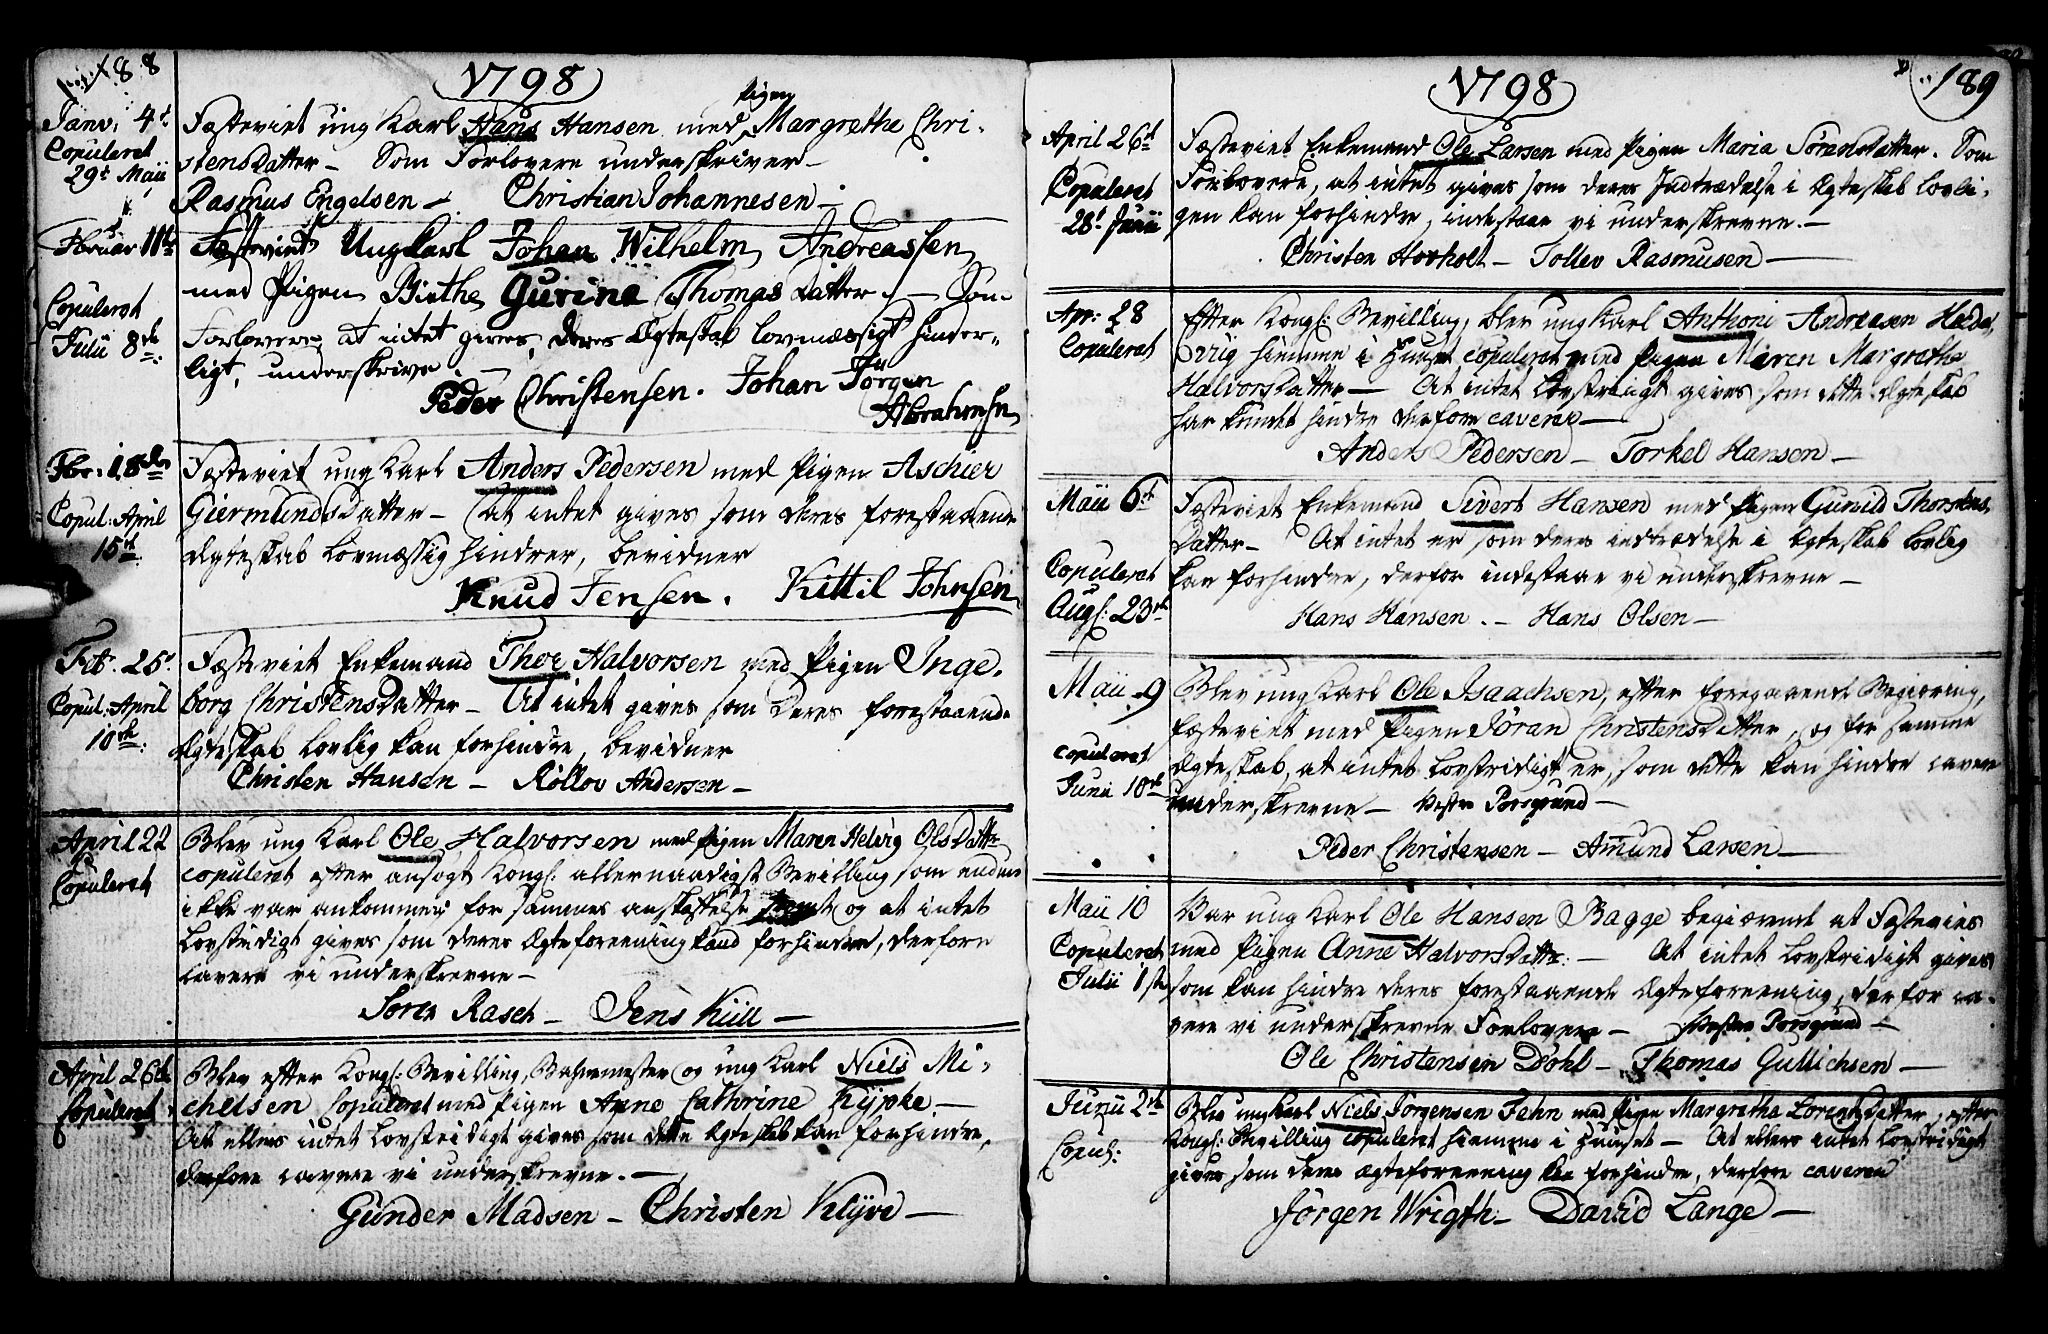 188
1798
Janv: 4t
Copuleret
29t Maii
Pigen
Fæsteviet ung Karl Hans Hansen med Margrethe Chri-
stensDatter – Som Forlovere underskriver –
Rasmus Engelsen – Christian Johannesen –
Februar 11te
Copuleret
Julii 8de
Fæsteviet Ungkarl Johan Wilhelm Andreassen
med Pigen Birthe Gurine Thomas Datter – Som
Forlovere at intet gives, deres Ægteskab lovmæssigt hinder-
ligt, underskrive
Peder Christensen. Johan Jörgen
Abrahmsen
Fbr: 18de
Copul: April
15de
Fæsteviet ung Karl Anders Pedersen med Pigen Aschier
GiermundsDatter – at intet gives som deres forestaaende
Ægteskab lovmæssig hindrer, bevidner
Knud Jensen. Kittil Johnsen
Feb. 25t
Copul: April
10de
Fæsteviet Enkemand Thor Halvorsen med Pigen Inge-
borg ChristensDatter – At intet gives som deres forestaaende
Ægteskab lovlig kan forhindre, bevidner
Christen Hansen – Rollov Andersen –
April 22
Copuleret
Blev ung Karl Ole Halvorsen med Pigen Maren Helvig OlsDattr
copuleret efter ansøgt Kongl: allernaadigst Bevilling som endnu
ikke var ankommen, for sammes anskaffelse og at intet
lovstridigt gives som deres Ægteforeening kand forhindre, derfore
cavere vi underskrevne –
Soren Rasch – Jens Kiil –
April 26de
Copuleret
Blev efter Kongl: Bevilling, og ung Karl Niels Mi-
chelsen Copuleret med Pigen Anne Cathrine Kypke –
At ellers intet lovstridigt gives som dette Ægteskab kan forhindre,
derfore cavere vi underskrevne. –
Gunder Madsen – Christen Klyve –
189
1798
April 26t
Copuleret
28t Junii
Fæsteviet Enkemand Ole Larsen med Pigen Maria SörensDatter. Som
Forlovere, at intet gives som deres Indtrædelse i Ægteskab lovli-
gen kan forhindre, indestaae vi underskrevne. –
Christen Hovholt – Tollev Rasmusen –
Apr: 28
Copuleret
Efter Kongl: Bevilling, blev ung Karl Anthoni Andreasen
hiemme i Huuset copuleret med Pigen Maren Margrethe
HalvorsDatter – At intet lovstridigt gives som dette Ægteskab
har kundet hindre derfore cavere –
Anders Pedersen – Torkel Hansen –
Maii 6te
Copuleret
Aug: 23de
Fæsteviet Enkemand Sivert Hansen med Pigen Gunild Thorstens
Datter – At intet er som deres indtrædelse i Ægteskab lovlig
kan forhindre, derfor indestaae vi underskrevne –
Hans Hansen. – Hans Olsen –
Maii 9
copuleret
Junii 10de
Blev ung Karl Ole Isaachsen, efter foregaaende Begiering,
fæsteviet med Pigen Jöran ChristensDatter, og for samme
Ægteskab, at intet lovstridigt er, som dette kan hindre cavere
underskrevne – Vester Porsgrund –
Peder Christensen – Amund Larsen –
Maii 10
Copuleret
Julii 1ste
Var ung Karl Ole Hansen Bagge begiærende at Fæstevies
med Pigen Anne HalvorsDattr: – At intet lovstridigt gives
som kan hindre deres forestaaende Ægteforeening, derfor ca-
vere vi underskrevne Forlovere – Vester Porsgrund –
Ole Christensen Dohl – Thomas Gullichsen –
Junii 2de
Copul:
Blev ung Karl Niels Jörgensen Fehn med Pigen Margretha LorentsDatter, efter
Kongl: Bevilling copuleret hiemme i Huuset – At ellers intet lovstridigt
gives som deres Ægteforeening kan forhindre, derfore caverer
Jörgen Wrigth – David Lange –